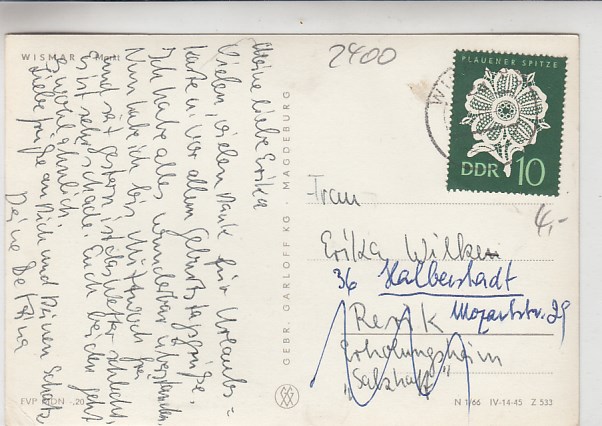 WISMAR · Markt
Meine liebe Erika
Vielen, vielen Dank für Urlaubs=
karte u. vor allem Geburtstagsgrüße.
Ich habe alles wunderbar überstanden.
Nun habe ich bis Mittwoch frei
und seit gestern ist das Wetter schlecht.
Es ist sehr schade. Euch beiden geht
es wohl ähnlich
Liebe Grüße an Dich und Deinen Schatz
Deine
EVP MDN -,20
GEBR. GARLOFF KG · MAGDEBURG
2400
PLAUENER SPITZE
DDR 10
4,-
Frau
Erika Wilken
36 Halberstadt
Rerik Mozartstr. 29
Erholungsheim
"Salzhaff"
N 1/66 IV-14-45 Z 533